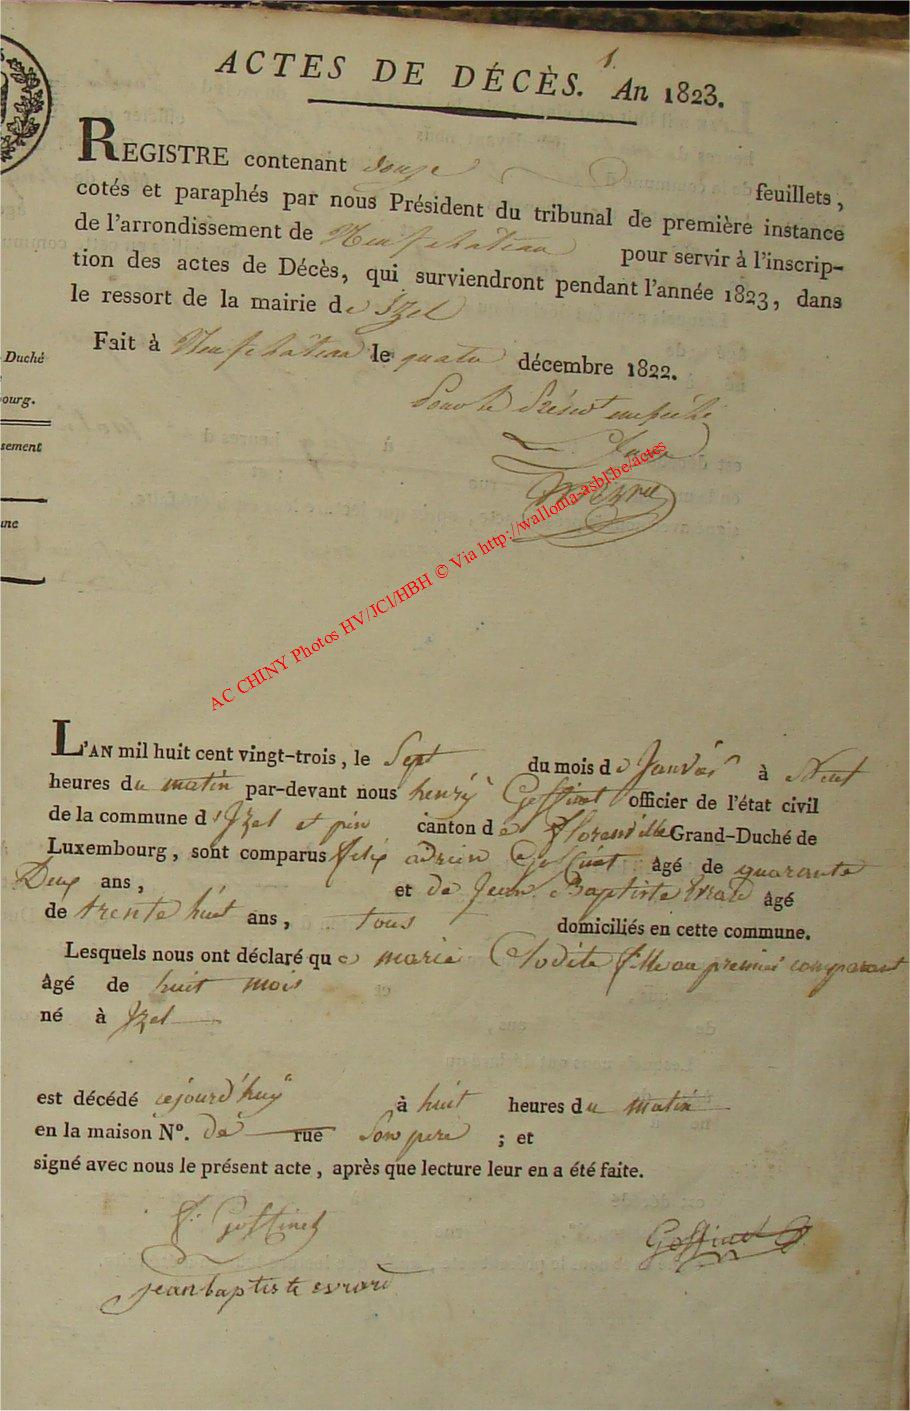 1.
ACTES DE DÉCÈS. An 1823.
REGISTRE contenant douze feuillets,
cotés et paraphés par nous Président du tribunal de première instance
de l'arrondissement de Neufchâteau pour servir à l'inscrip-
tion des actes de Décès, qui surviendront pendant l'année 1823, dans
le ressort de la mairie de Izel
Fait à Neufchâteau le quatre décembre 1822.
Pour le Présidt empêché
Duché
ourg.
sement
une
AC CHINY Photos HV/JCl/HBH © Via http://wallonia-asbl.be/actes
L'AN mil huit cent vingt-trois, le Sept du mois de Janvier à Neuf
heures du matin par-devant nous henry Goffinet officier de l'état civil
de la commune d'Izel et pin canton de florenville Grand-Duché de
Luxembourg, sont comparus felix adrien Goffinet âgé de quarante
Deux ans, et de Jean Baptiste Evrard âgé
de trente huit ans, tous domiciliés en cette commune.
Lesquels nous ont déclaré que marie Clodite fille au premier comparant
âgé de huit mois
né à Izel
est décédé cejourd'huy à huit heures du matin
en la maison N°. de rue Son pere ; et
signé avec nous le présent acte, après que lecture leur en a été faite.
f. Goffinet
Goffinet
jean baptiste evrard